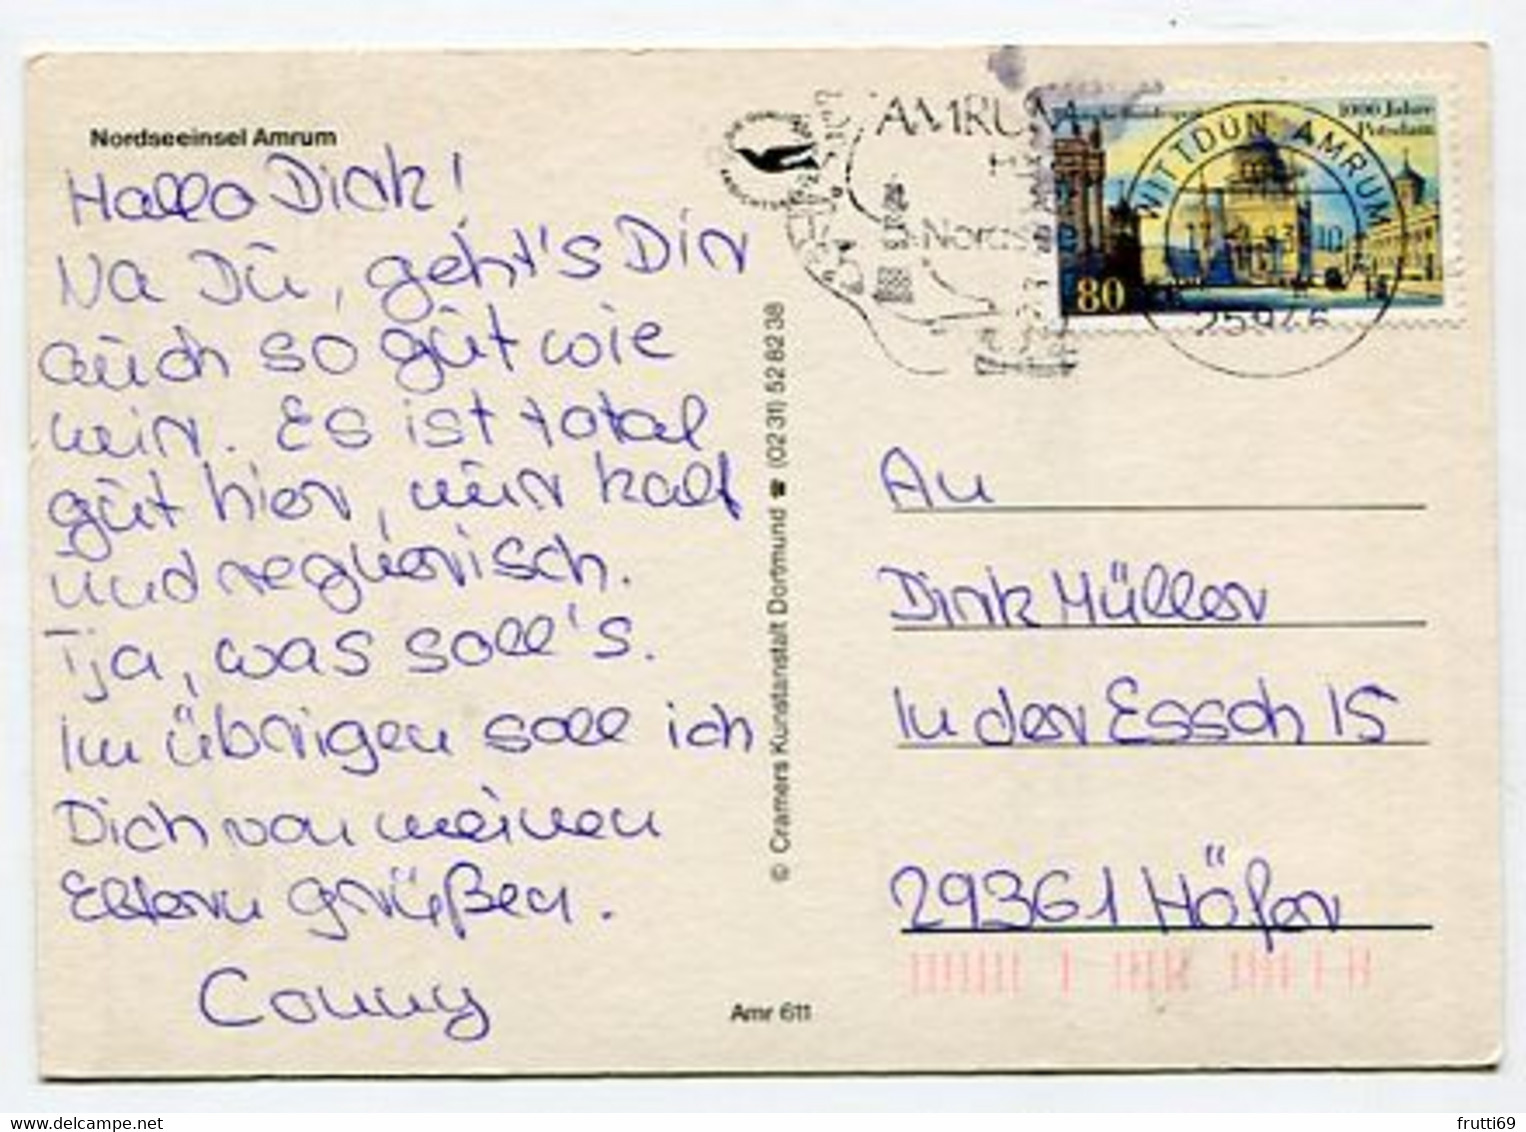 Nordseeinsel Amrum
Hallo Dirk!
Na Dū, geht's Dir
aūch so gūt wie
mir. Es ist total
gūt hier, nūr kalt
ūnd regnerisch.
Tja, was soll's.
Im übrigen soll ich
Dich von meinen
Eltern grüßen.
Conny
© Cramers Kunstanstalt Dortmund ☎ (02 31) 52 82 38
Amr 611
AMRUM
Nordsee
1000 Jahre
Potsdam
80
WITTDÜN AMRUM
25946
An
Dirk Müller
In der Essch 15
29361 Höfer
frutti69